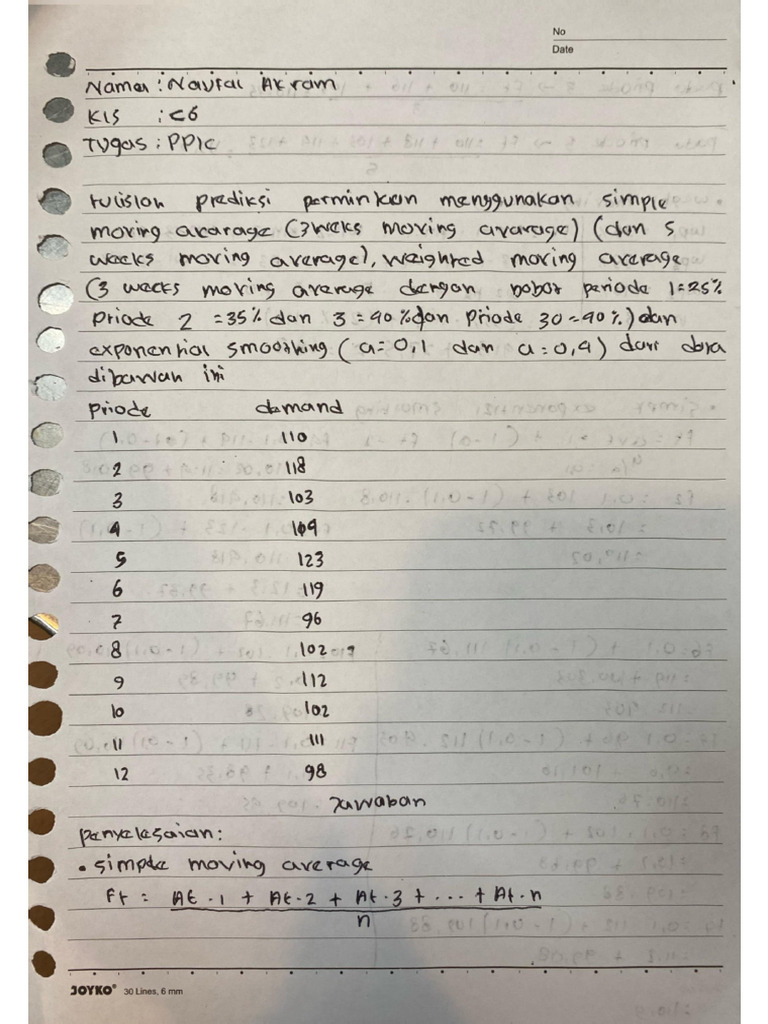 No
Date
Nama : Naufal Akram
Kls : C6
Tugas : PPIC
tulislah prediksi perminkan menggunakan simple
moving avarage (3 weks moving avarage) (dan 5
weeks moving average), weighted moving average
(3 weeks moving average dengan bobot periode 1 = 25%
Priode 2 = 35% dan 3 = 40% dan Priode 30 = 40%) dan
exponential smoothing (a = 0,1 dan a = 0,4) dari data
dibawah ini
Priode demand
1. 110
2 118
3 103
4 109
5 123
6 119
7 96
8 102
9 112
10 102
11 111
12 98
Jawaban
penyelesaian :
• simple moving average
Ft = At-1 + At-2 + At-3 + ... + At-n
n
JOYKO® 30 Lines, 6 mm